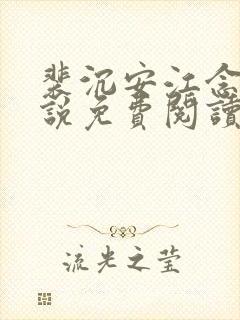 裴沉安江念
說免費閱讀
流光之莹